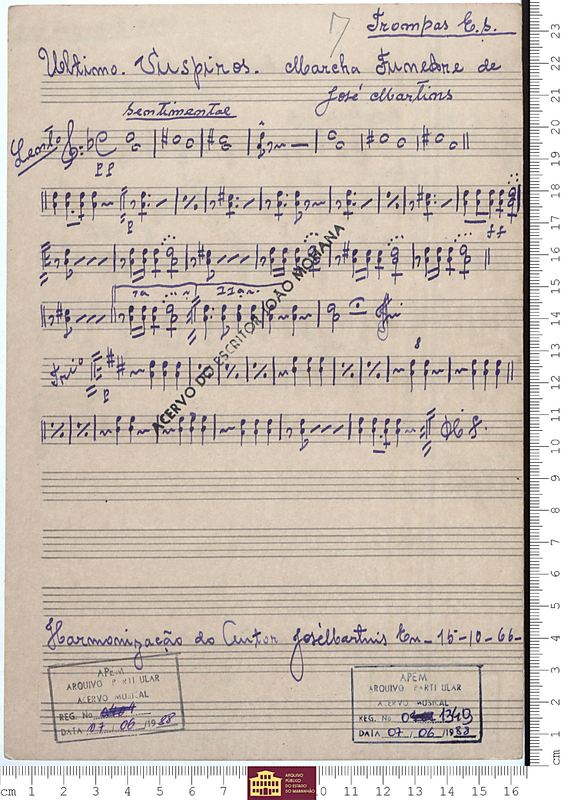 7
Trompas E.b.
Ultimo. Suspiros. Marcha Funebre de
José Martins
sentimental
Lento
pp
p
ff
1a
11a
ACERVO DO ESCRITOR JOÃO MOHANA
Fim
Trio
p
8
Harmonização do Autor José Martins Em - 15-10-66-
APEM
ARQUIVO PARTICULAR
ACERVO MUSICAL
REG. No
DATA 07 / 06 / 1988
APEM
ARQUIVO PARTICULAR
ACERVO MUSICAL
REG. No 1349
DATA 07 / 06 / 1988
cm 1 2 3 4 5 6 7 10 11 12 13 14 15 16
cm 1 2 3 4 5 6 7 8 9 10 11 12 13 14 15 16 17 18 19 20 21 22 23
ARQUIVO
PÚBLICO
DO ESTADO
DO MARANHÃO